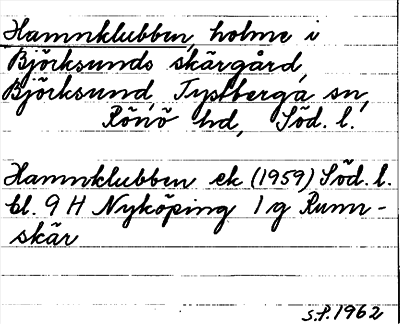 Hamnklubben, holme i
Björksunds skärgård,
Björksund, Tystberga sn,
Rönö hd, Söd. l.
Hamnklubben ek (1959) Söd. l.
bl. 9 H Nyköping 1 g Rumr-
skär
S.P. 1962